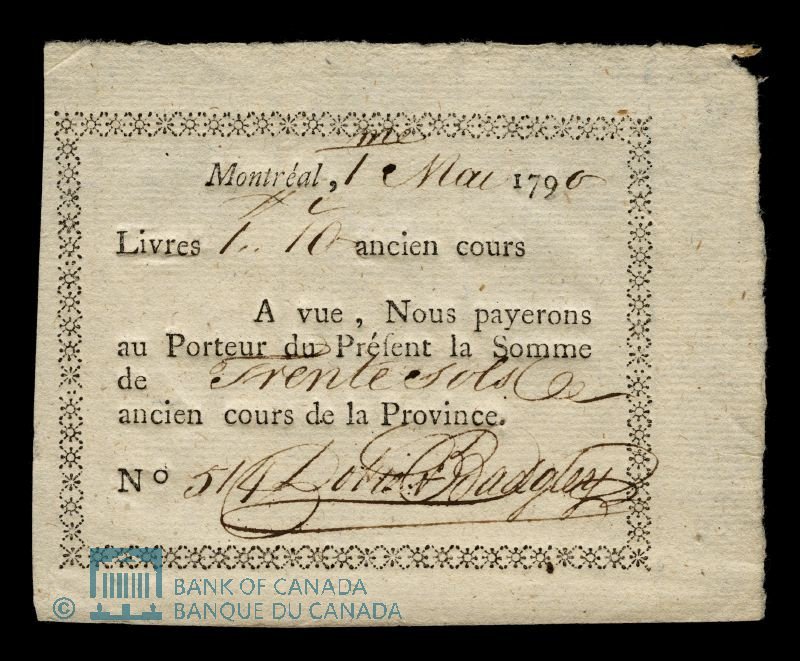 Montréal, 1me Mai 1790
Livres 1.. 10 ancien cours
A vue, Nous payerons
au Porteur du Préſent la Somme
de Trente sols
ancien cours de la Province.
No 514 Dobie & Badgley
© BANK OF CANADA
BANQUE DU CANADA